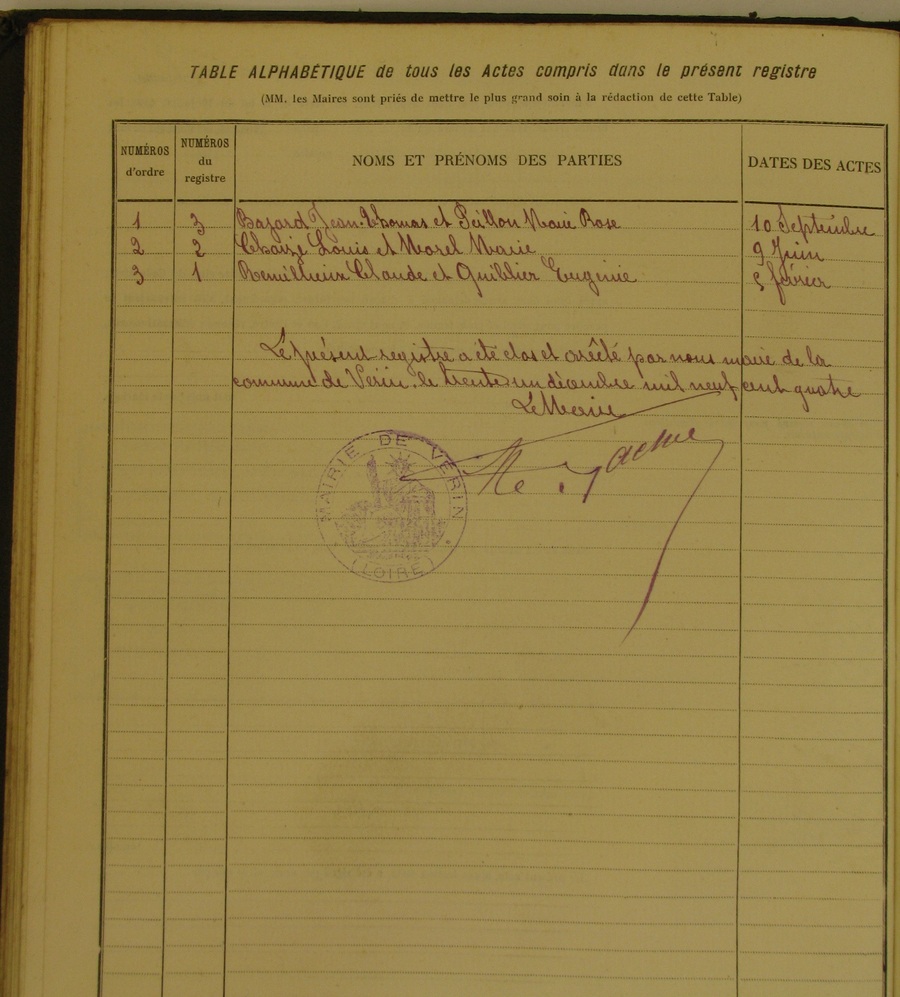 TABLE ALPHABÉTIQUE de tous les Actes compris dans le présent registre
(MM. les Maires sont priés de mettre le plus grand soin à la rédaction de cette Table)
NUMÉROS d'ordre NUMÉROS du registre NOMS ET PRÉNOMS DES PARTIES DATES DES ACTES
1 3 Bazard Jean-Thomas et Peillon Marie Rose 10 Septembre
2 2 Chaize Louis et Morel Marie 9 Juin
3 1 Remillieux Claude et Quiblier Eugénie 5 février
Le présent registre a été clos et arrêté par nous maire de la
commune de Vérin, le trente un décembre mil neuf cent quatre
Le Maire
MAIRIE DE VÉRIN
(LOIRE)